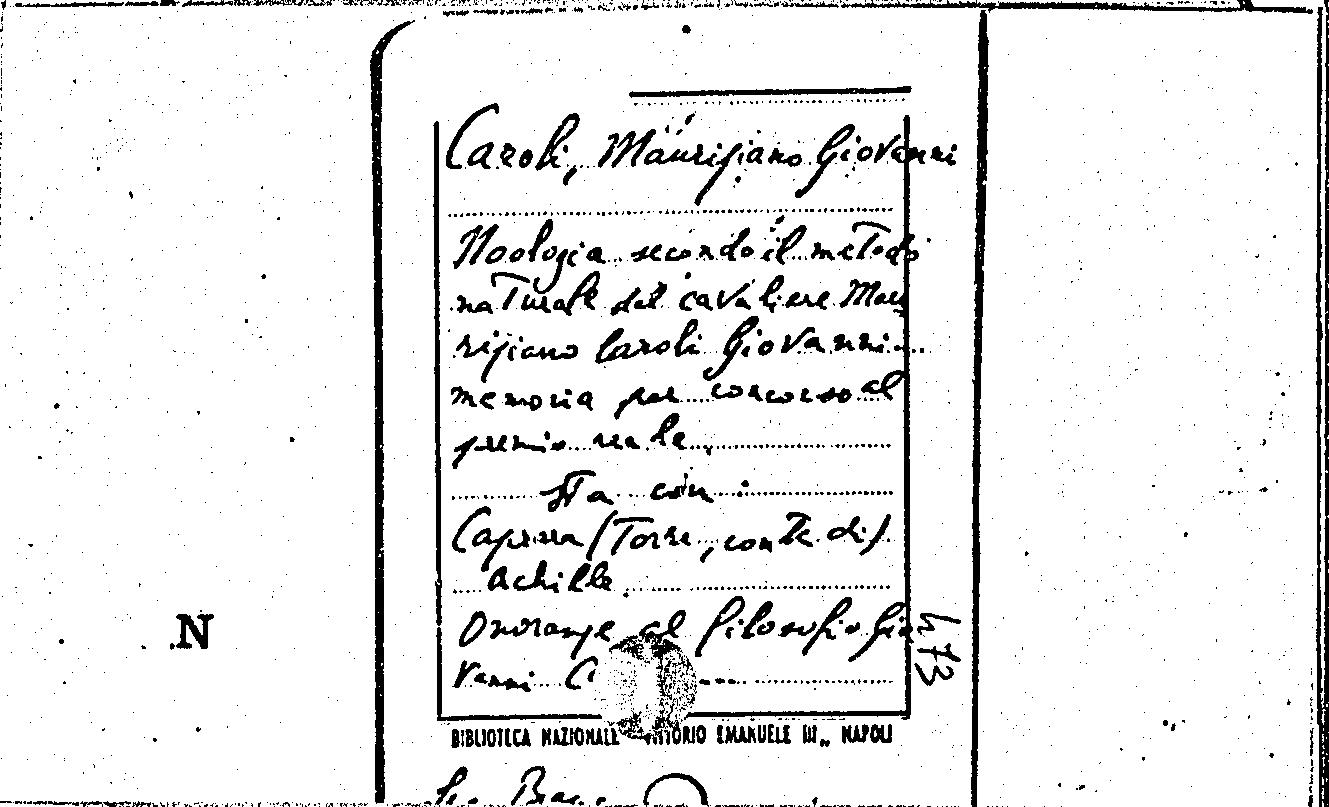 Caroli, Mauriziano Giovanni
Noologia secondo il metodo
naturale del cavaliere Mau
riziano Caroli Giovanni
memoria per concorso al
premio reale
sta con:
Caprara (Torre, conte di)
Achille
Onoranze al filosofo Gio
vanni C
BIBLIOTECA NAZIONALE VITTORIO EMANUELE III„ NAPOLI
N